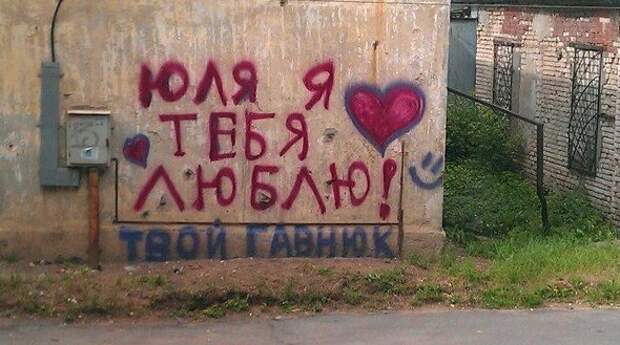 ЮЛЯ Я
ТЕБЯ
ЛЮБЛЮ!
ТВОЙ ГАВНЮК